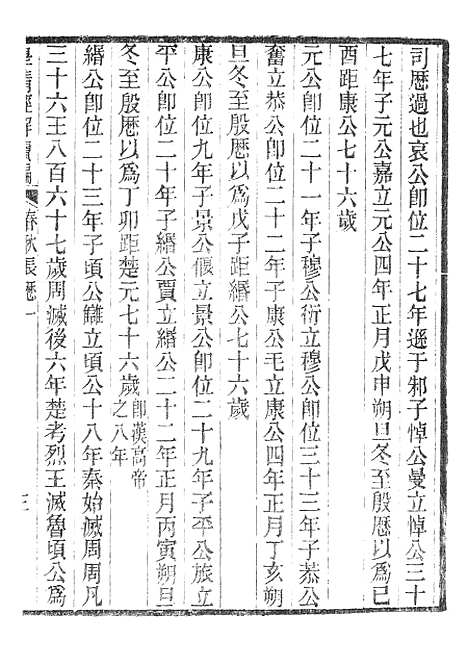 司歴過也哀公卽位二十七年遜于邾子悼公曼立悼公三十
七年子元公嘉立元公四年正月戊申朔旦冬至殷歴以爲己
酉距康公七十六歲
元公卽位二十一年子穆公衍立穆公卽位三十三年子恭公
奮立恭公卽位二十二年子康公毛立康公四年正月丁亥朔
旦冬至殷歴以爲戊子距緡公七十六歲
康公卽位九年子景公偃立景公卽位二十九年子平公旅立
平公卽位二十年子緡公賈立緡公二十二年正月丙寅朔旦
冬至殷歴以爲丁卯距楚元七十六歲卽漢高帝之八年
緡公卽位二十三年子頃公讎立頃公十八年秦始滅周周凡
三十六王八百六十七歲周滅後六年楚考烈王滅魯頃公爲
皇清經解續編 春秋長歴一 三